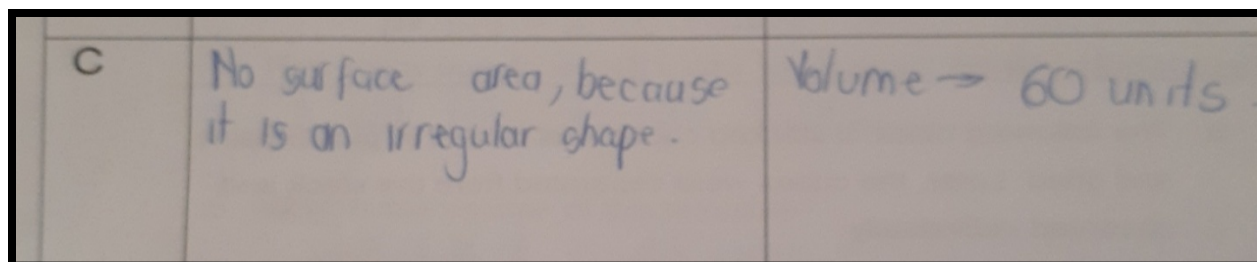 C
No surface area, because
it is an irregular shape.
Volume → 60 units